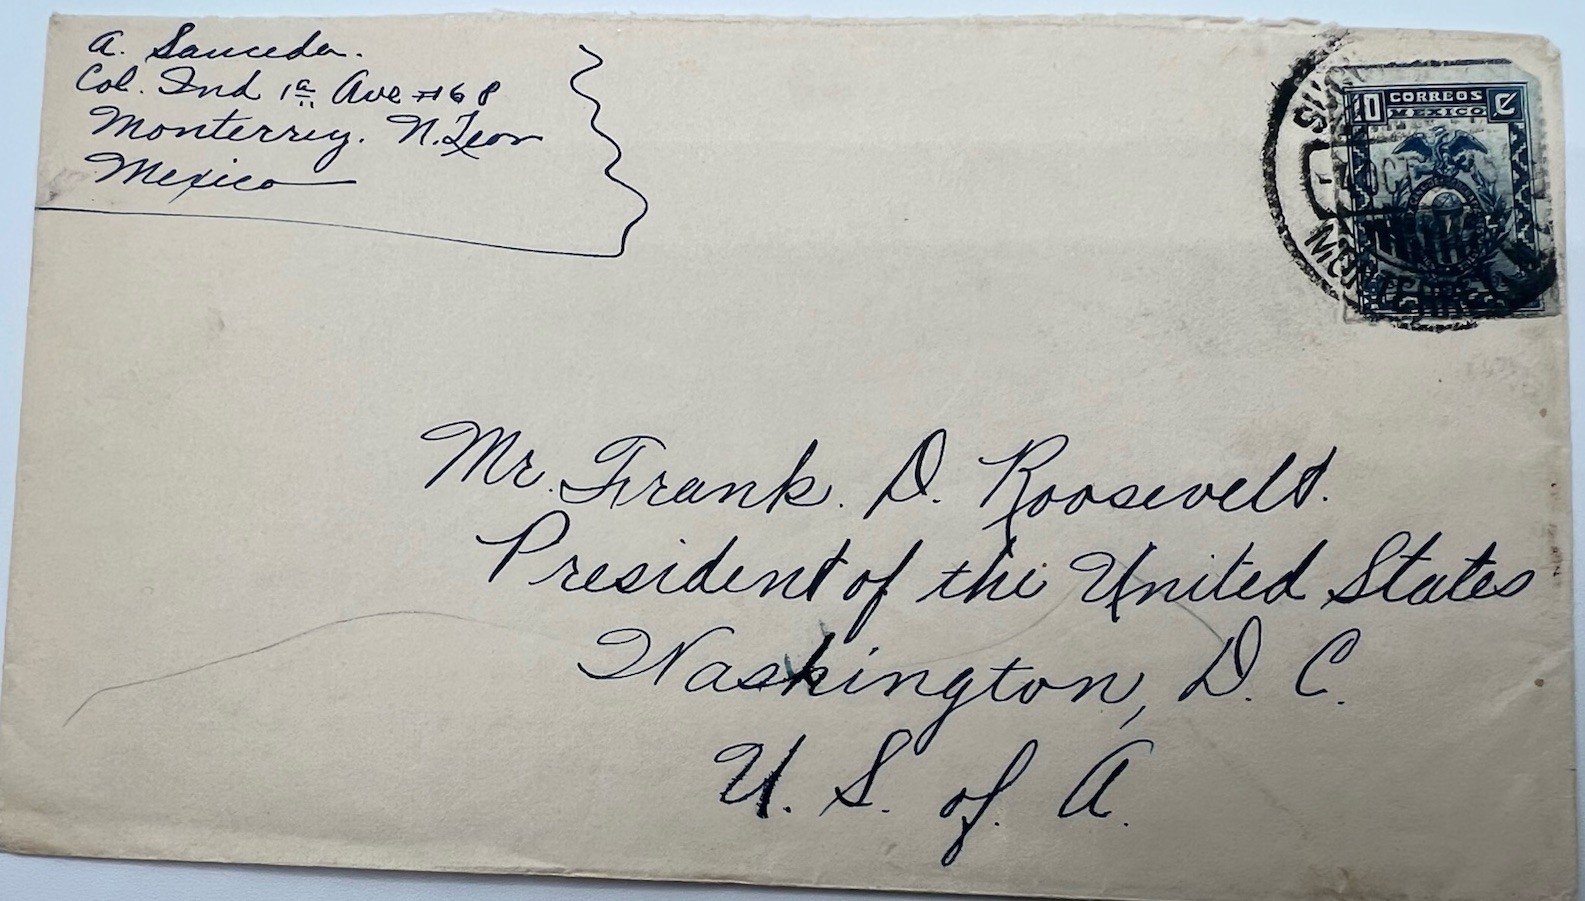 A. Sauceda.
Col. Ind 1a Ave #68
Monterrey. N. Leon
Mexico
10 CORREOS ¢
MEXICO
SUC
OCT
MONTERREY
Mr. Frank. D. Roosevelt.
President of the United States
Washington, D. C.
U. S. of. A.